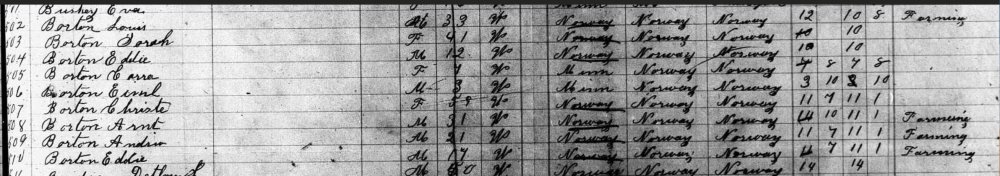 501 Bushey Eva
502 Borton Louis M 39 W Norway Norway Norway 12 10 8 Farming
503 Borton Sorah F 41 W Norway Norway Norway 10 10
504 Borton Eddie M 12 W Norway Norway Norway 10 10
505 Borton F W Minn Norway Norway 8 7 8
506 Borton Eiml M 3 W Minn Norway Norway 3 10 3 10
507 Borton Christe F 58 W Norway Norway Norway 11 7 11 1
508 Borton Arnt M 31 W Norway Norway Norway 10 11 1 Farming
509 Borton Andrew M 21 W Norway Norway Norway 11 7 11 1 Farming
510 Borton Eddie M 17 W Norway Norway Norway 7 11 1 Farming
M 50 W Norway Norway Norway 14 14